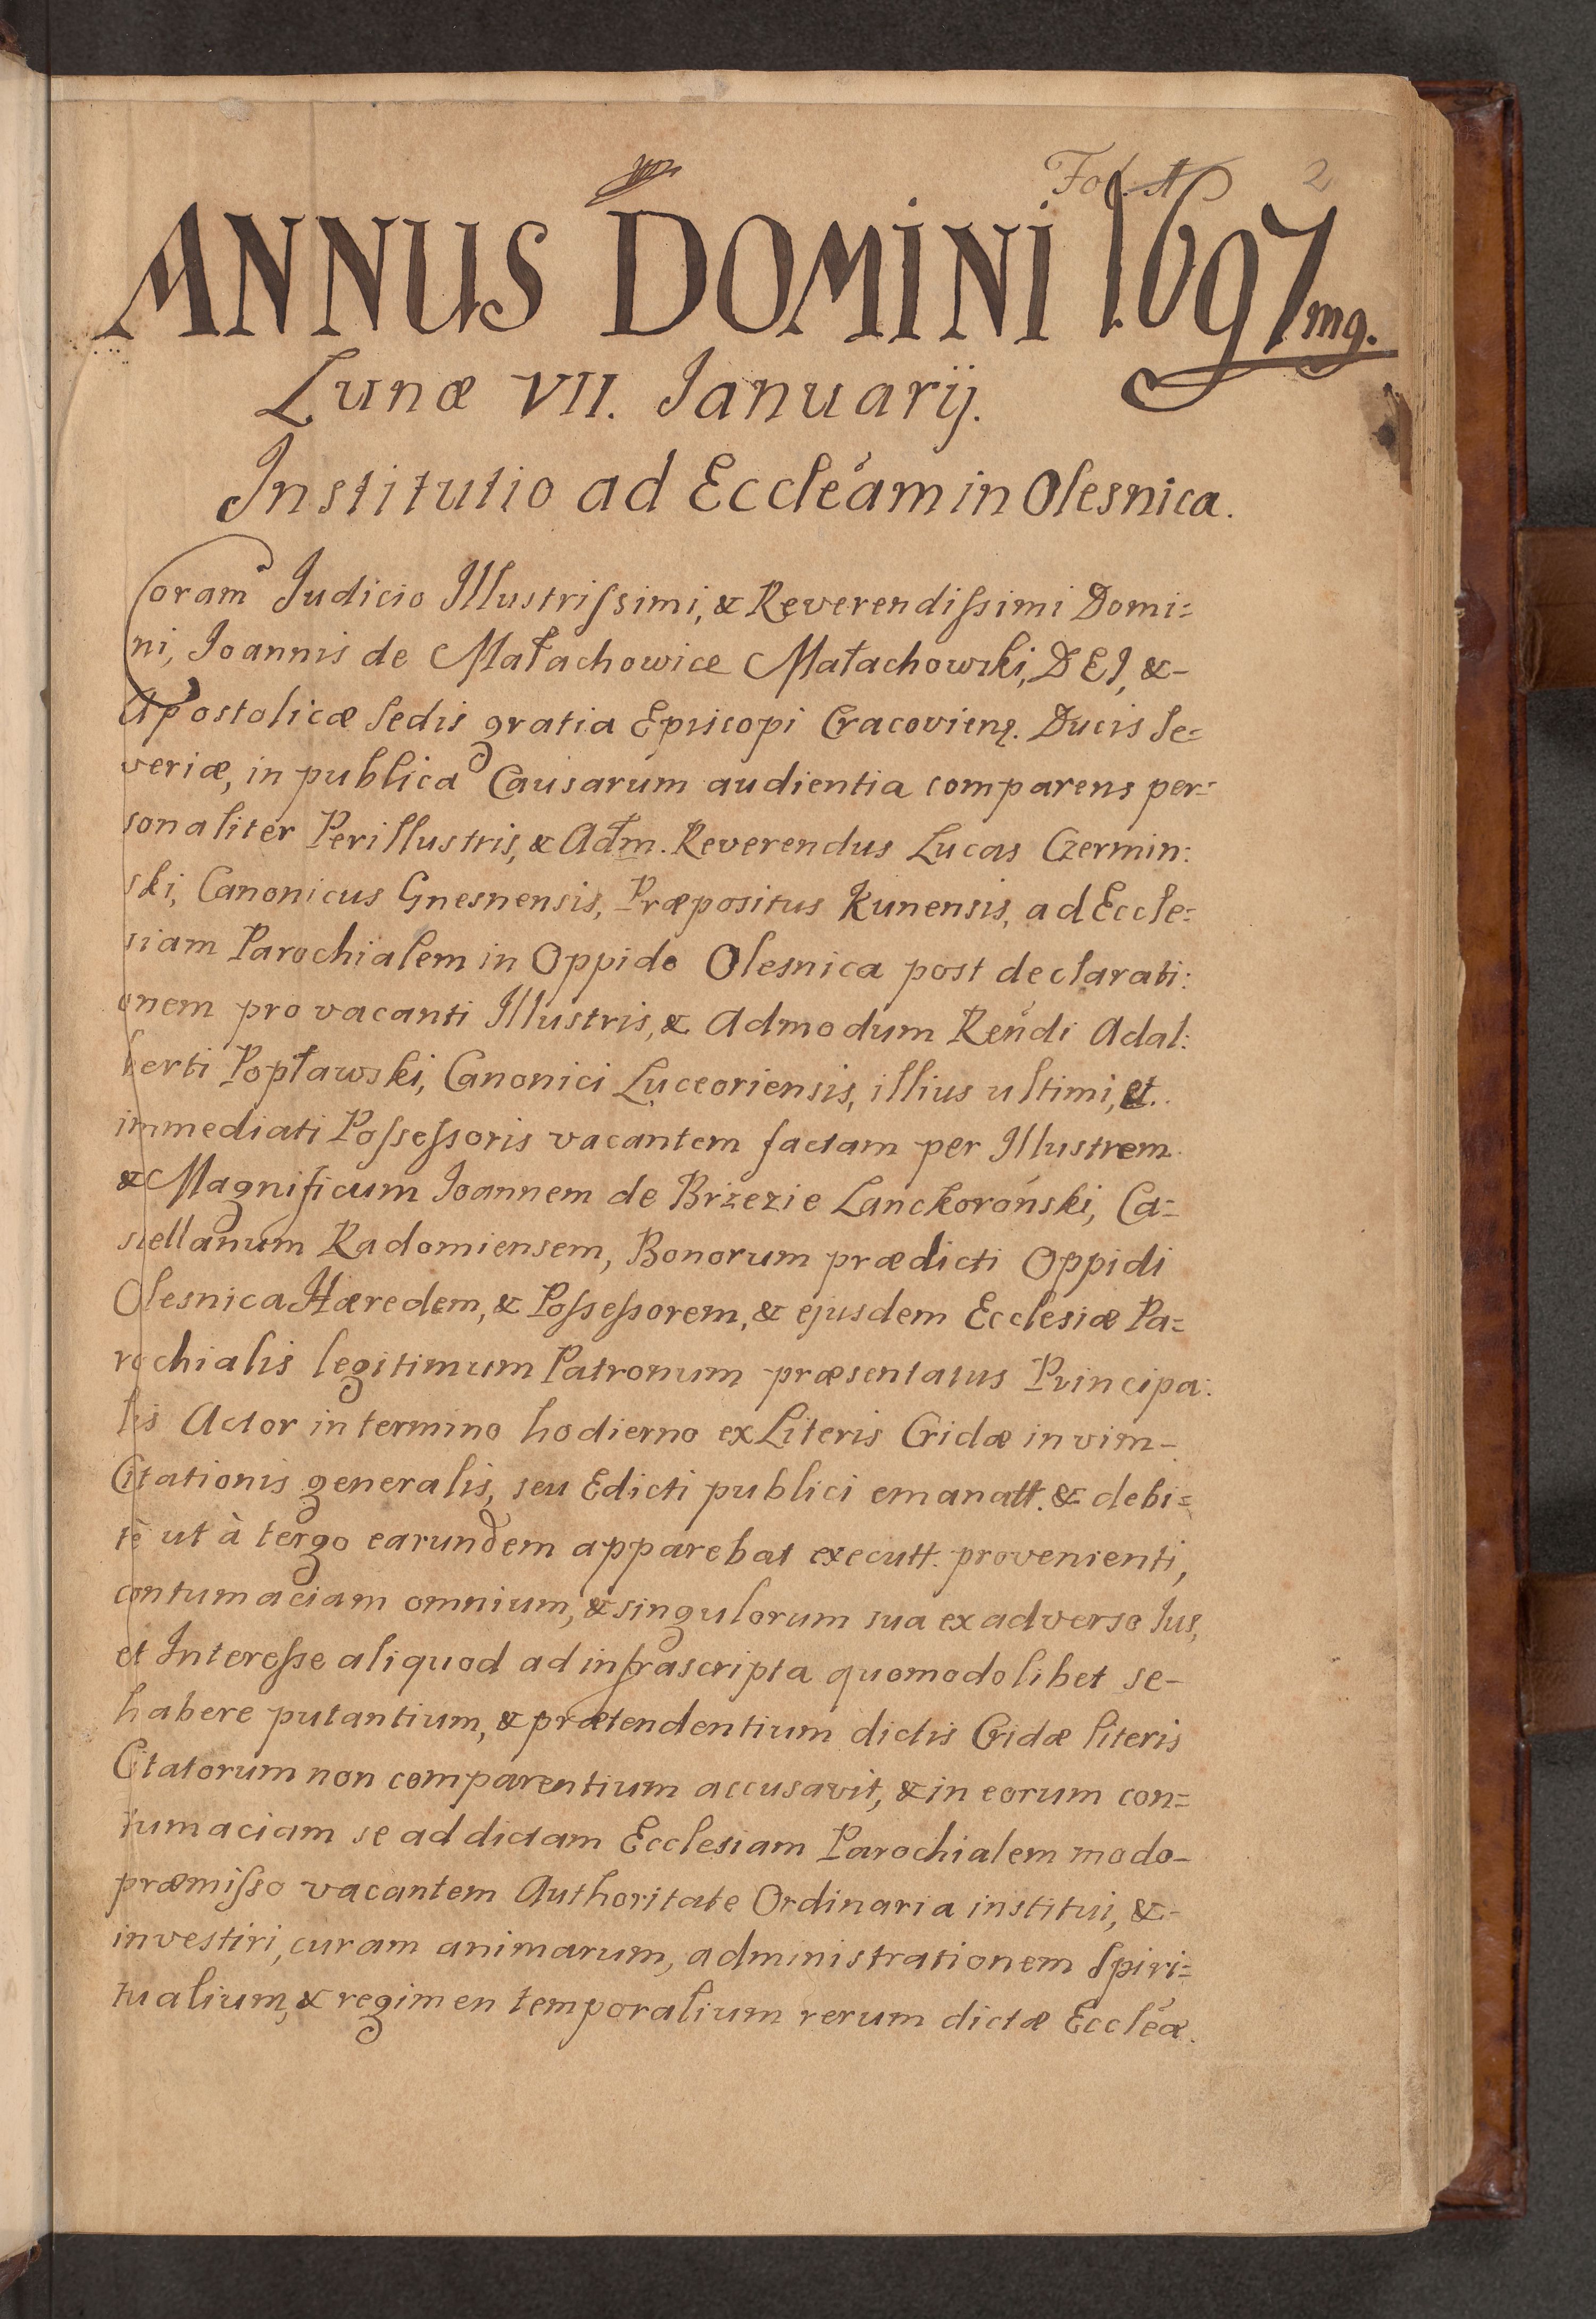 Fol. 1 2
ANNUS DOMINI 1697mg.
Lunæ VII. Januarij.
Institutio ad Eccleám in Olesnica.
Coram Judicio Illustrissimi, & Reverendissimi Domi=
ni, Joannis de Małachowice Małachowski, DEI, &-
Apostolicæ Sedis gratia Episcopi Cracovienq. Ducis Se=
veriæ, in publica Causarum audientia comparens per=
sonaliter Perillustris, & Adm. Reverendus Lucas Czermin:
ski, Canonicus Gnesnensis, Præpositus Kunensis, ad Eccle=
siam Parochialem in Oppido Olesnica post declarati:
onem pro vacanti Illustris, & Admodum Reńdi Adal:
berti Popławski, Canonici Luceoriensis, illius ultimi, et.
immediati Possessoris vacantem factam per Illustrem
& Magnificum Joannem de Brzezie Lanckoroński, Ca=
stellanum Radomiensem, Bonorum prædicti Oppidi
Olesnica Hæredem, & Possessorem, & ejusdem Ecclesiæ Pa=
rochialis legitimum Patronum præsentatus Principa:
lis Actor in termino hodierno ex Literis Cridæ in vim-
Citationis generalis, seu Edicti publici emanatt. & debi=
tè ut à tergo earundem apparebat executt. provenienti,
contumaciam omnium, & singulorum sua ex adverso Jus,
et Interesse aliquod ad infrascripta quomodolibet se-
habere putantium, & prætendentium dictis Cridæ literis
Citatorum non comparentium accusavit, & in eorum con=
tumaciam se ad dictam Ecclesiam Parochialem modo-
præmisso vacantem Authoritate Ordinaria institui, &-
investiri, curam animarum, administrationem Spiri=
tualium, & regimen temporalium rerum dictæ Eccléæ.